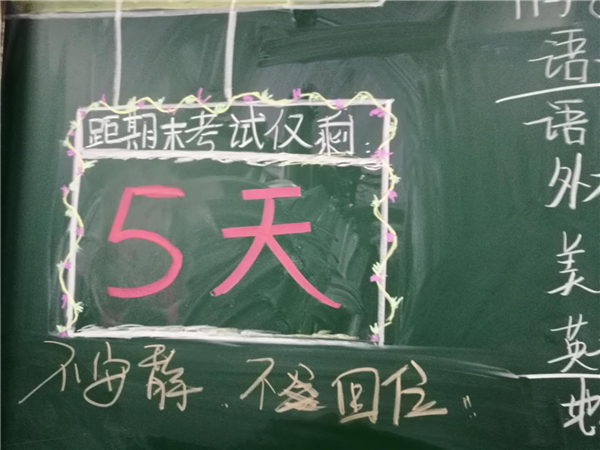 距期末考试仅剩:
5天
不安静、不回位!!
语
语
外
美
英
地